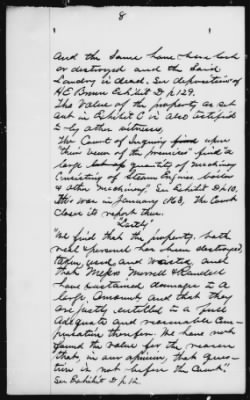 8
And the same have been lost
or destroyed and the said
Landry is dead. See deposition of
H E Brown Exhibit D p 129.
The value of the property as set
out in Exhibit C is also testified
to by other witnesses,
The Court of Inquiry upon
"their view of the premises" find a
large quantity of machinery
Consisting of Steam Engines, boiler
& other Machinery." See Exhibit D p 10,
This was in January 1863, The Court
closes its report thus.
"Lastly"
"We find that the property, both
real & personal has been destroyed,
taken, used and wasted, and
that Messrs Morrell & Randell
have sustained damages to a
large Amount and that they
are justly entitled to a full
Adequate and reasonable Com-
pensation therefor. We have not
found the value for the reason
that, in our opinion, that ques-
tion is not before the Court."
See Exhibit D p 12